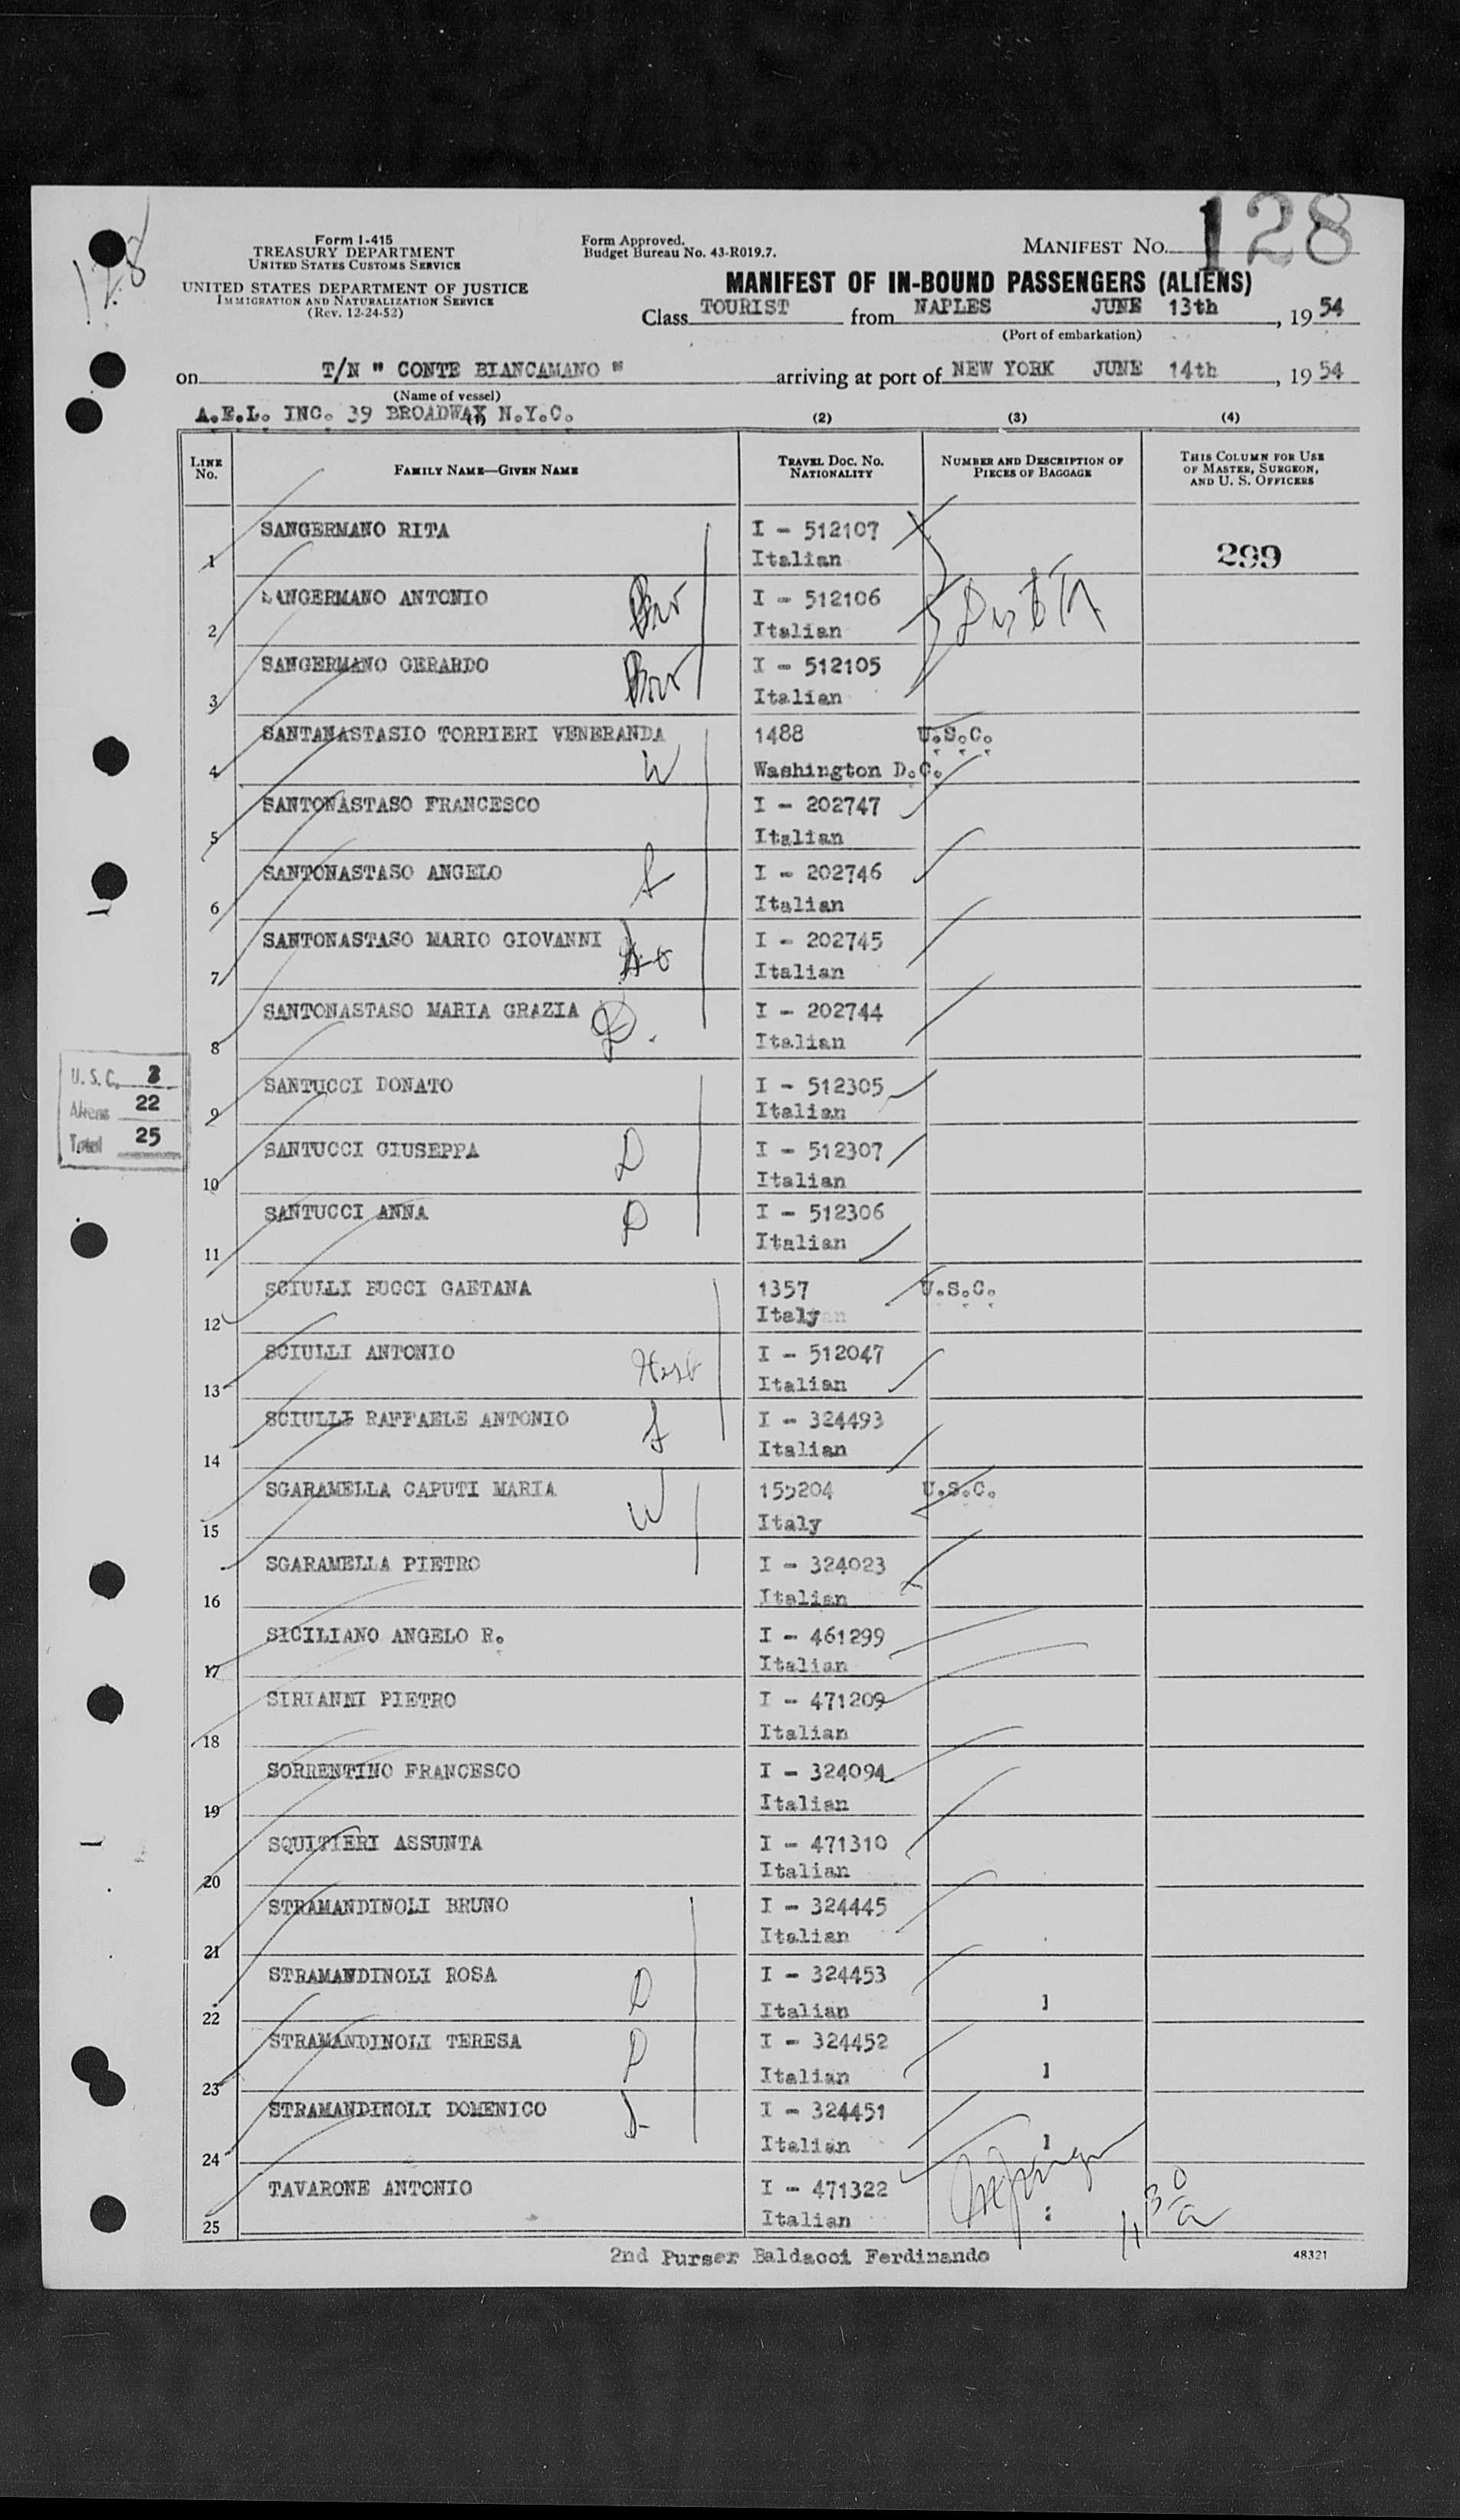 128
128
Form I-415
TREASURY DEPARTMENT
UNITED STATES CUSTOMS SERVICE
UNITED STATES DEPARTMENT OF JUSTICE
IMMIGRATION AND NATURALIZATION SERVICE
(Rev. 12-24-52)
Form Approved.
Budget Bureau No. 43-R019.7.
MANIFEST NO.
MANIFEST OF IN-BOUND PASSENGERS (ALIENS)
Class TOURIST from NAPLES JUNE 13th, 1954
(Port of embarkation)
on T/N " CONTE BIANCAMANO " arriving at port of NEW YORK JUNE 14th, 1954
(Name of vessel)
A.E.L. INC. 39 BROADWAY N.Y.C.
(1) (2) (3) (4)
LINE NO. FAMILY NAME—GIVEN NAME TRAVEL DOC. NO. NATIONALITY NUMBER AND DESCRIPTION OF PIECES OF BAGGAGE THIS COLUMN FOR USE OF MASTER, SURGEON, AND U. S. OFFICERS
1 SANGERMANO RITA I - 512107
Italian 299
2 SANGERMANO ANTONIO I - 512106
Italian
3 SANGERMANO GERARDO I - 512105
Italian
4 SANTANASTASIO TORRIERI VENERANDA W 1488 U.S.C.
Washington D.C.
5 SANTONASTASO FRANCESCO I - 202747
Italian
6 SANTONASTASO ANGELO I - 202746
Italian
7 SANTONASTASO MARIO GIOVANNI I - 202745
Italian
8 SANTONASTASO MARIA GRAZIA D. I - 202744
Italian
U.S.C. 3
Aliens 22
Total 25
9 SANTUCCI DONATO I - 512305
Italian
10 SANTUCCI GIUSEPPA D I - 512307
Italian
11 SANTUCCI ANNA D I - 512306
Italian
12 SCIULLI BUCCI GAETANA 1357 U.S.C.
Italy
13 SCIULLI ANTONIO I - 512047
Italian
14 SCIULLI RAFFAELE ANTONIO I - 324493
Italian
15 SGARAMELLA CAPUTI MARIA W 155204 U.S.C.
Italy
16 SGARAMELLA PIETRO I - 324023
Italian
17 SICILIANO ANGELO R. I - 461299
Italian
18 SIRIANNI PIETRO I - 471209
Italian
19 SORRENTINO FRANCESCO I - 324094
Italian
20 SQUITIERI ASSUNTA I - 471310
Italian
21 STRAMANDINOLI BRUNO I - 324445
Italian
22 STRAMANDINOLI ROSA D I - 324453
Italian 1
23 STRAMANDINOLI TERESA D I - 324452
Italian 1
24 STRAMANDINOLI DOMENICO I - 324451
Italian 1
25 TAVARONE ANTONIO I - 471322
Italian
2nd Purser Baldacci Ferdinando
48321